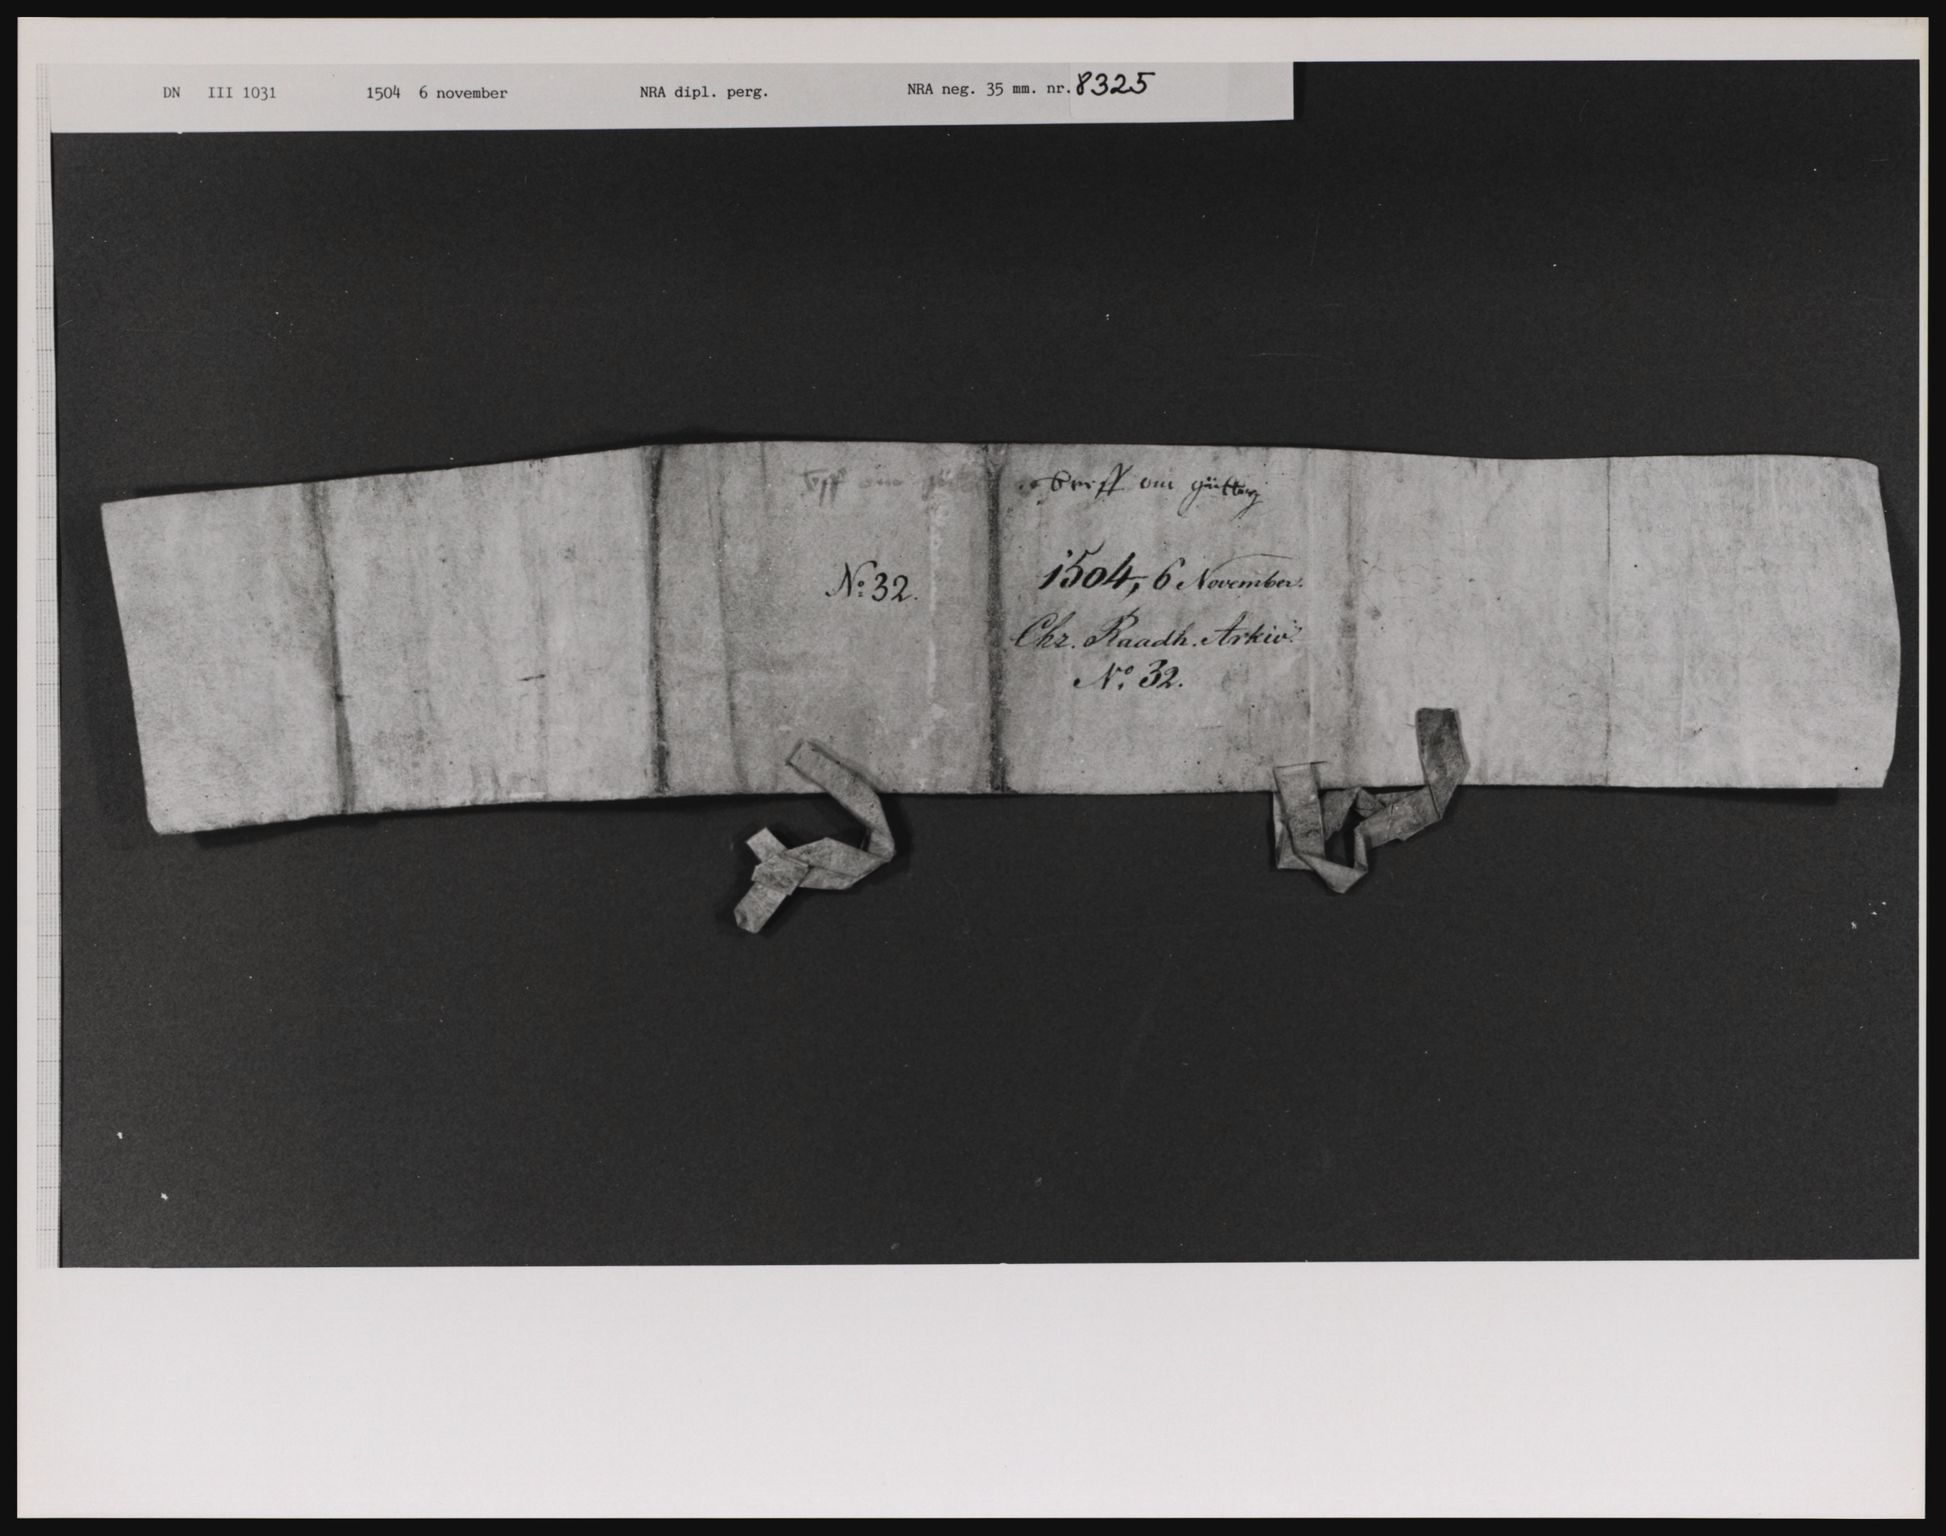 DN III 1031 1504 6 november NRA dipl. perg. NRA neg. 35 mm. nr. 8325
breff om
No: 32.
1504, 6 November.
Chr. Raadh. Arkiv
No. 32.